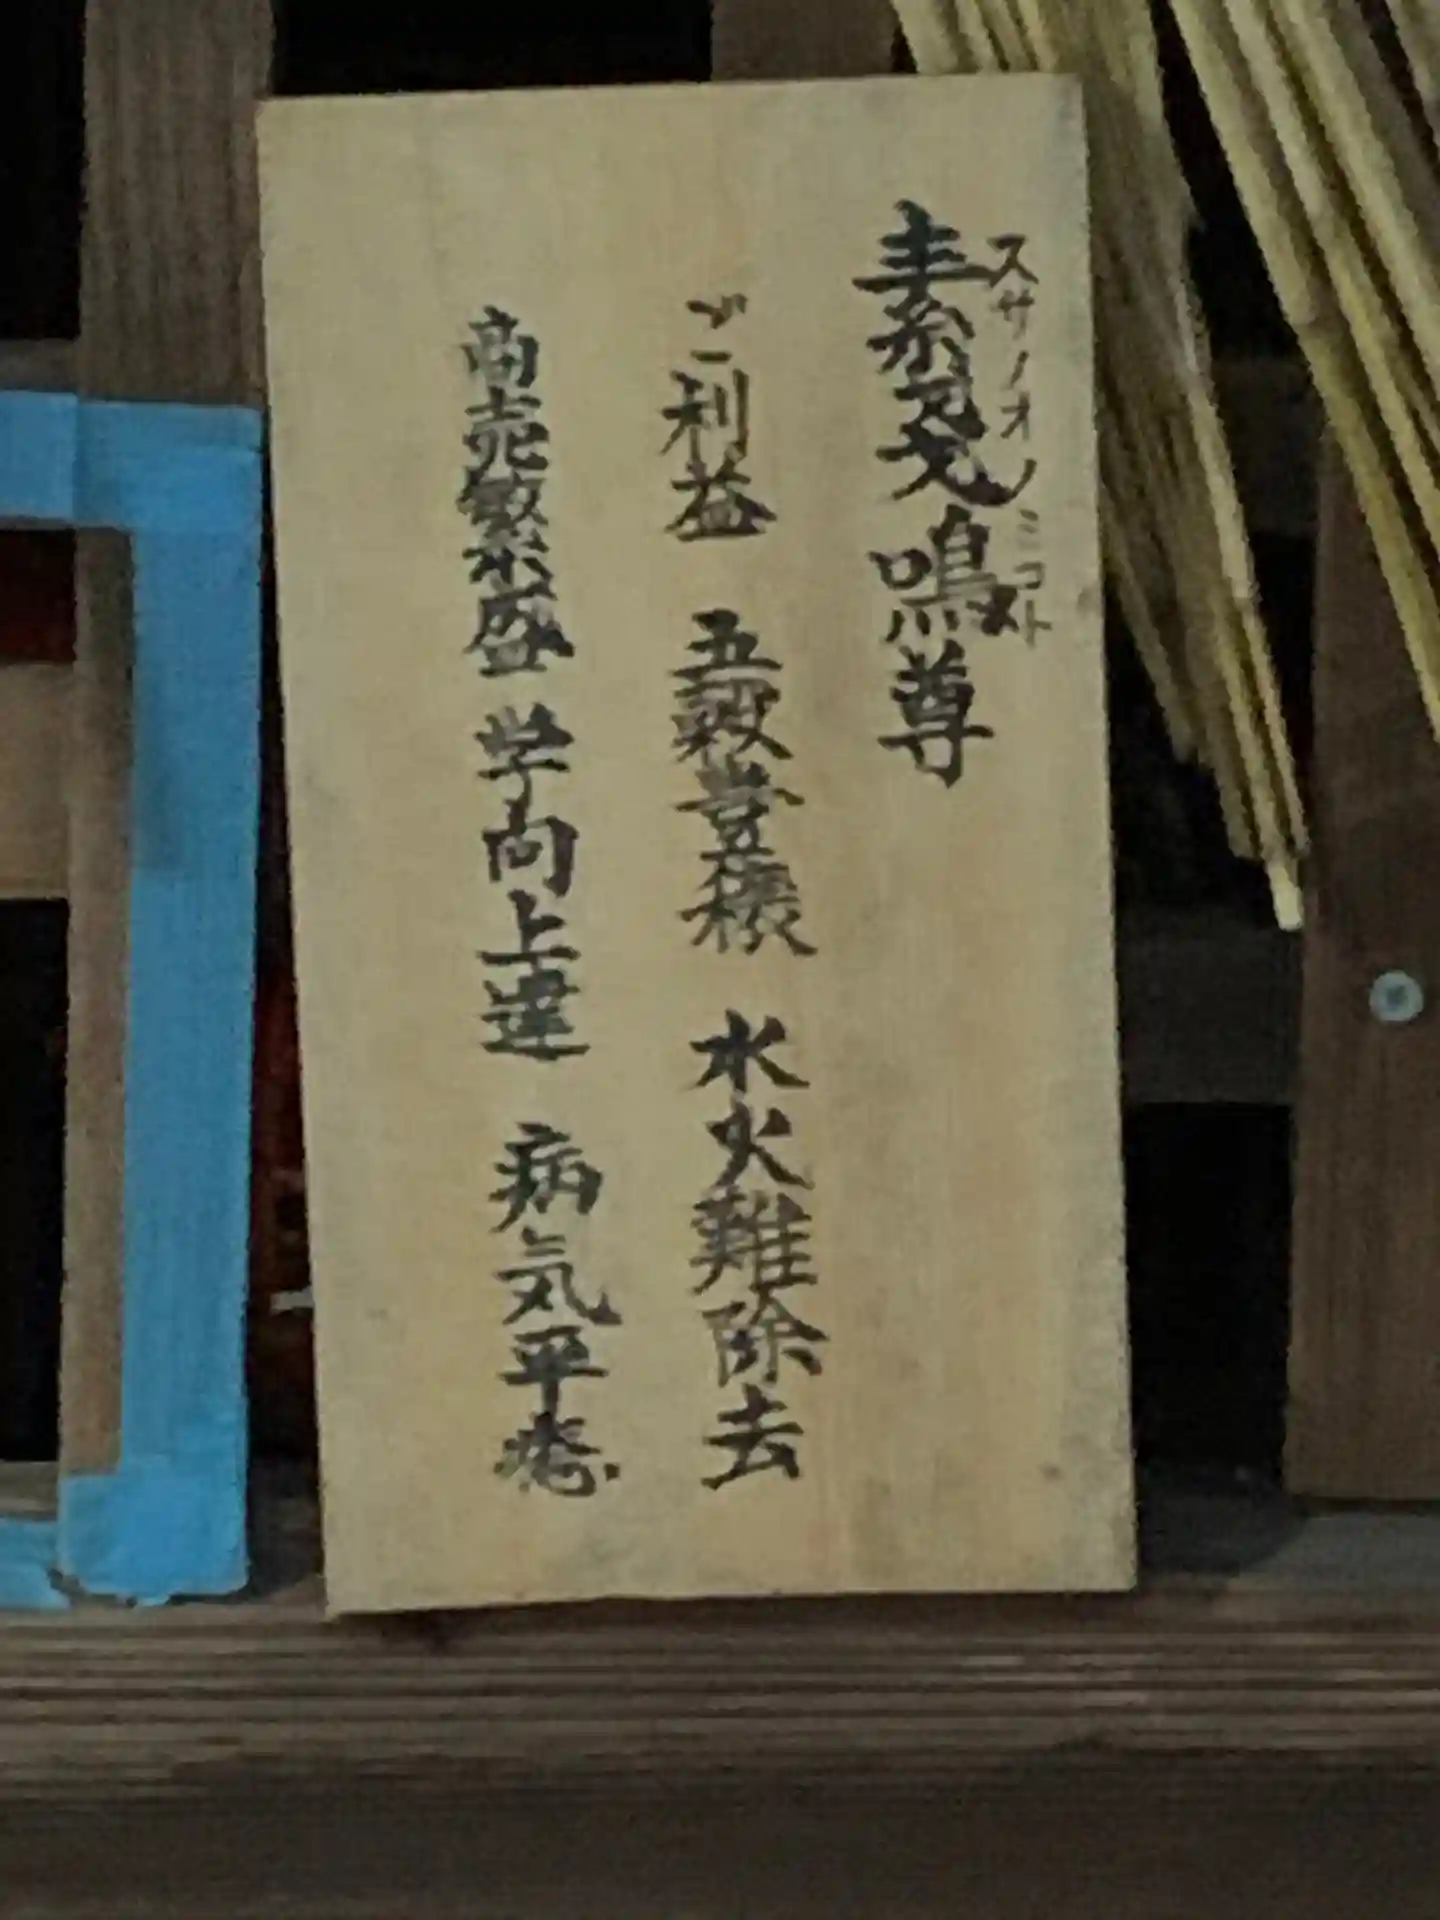 素戔嗚尊
スサノオノミコト
ご利益 五穀豊穣 水火難除去
商売繁盛 学向上達 病気平癒